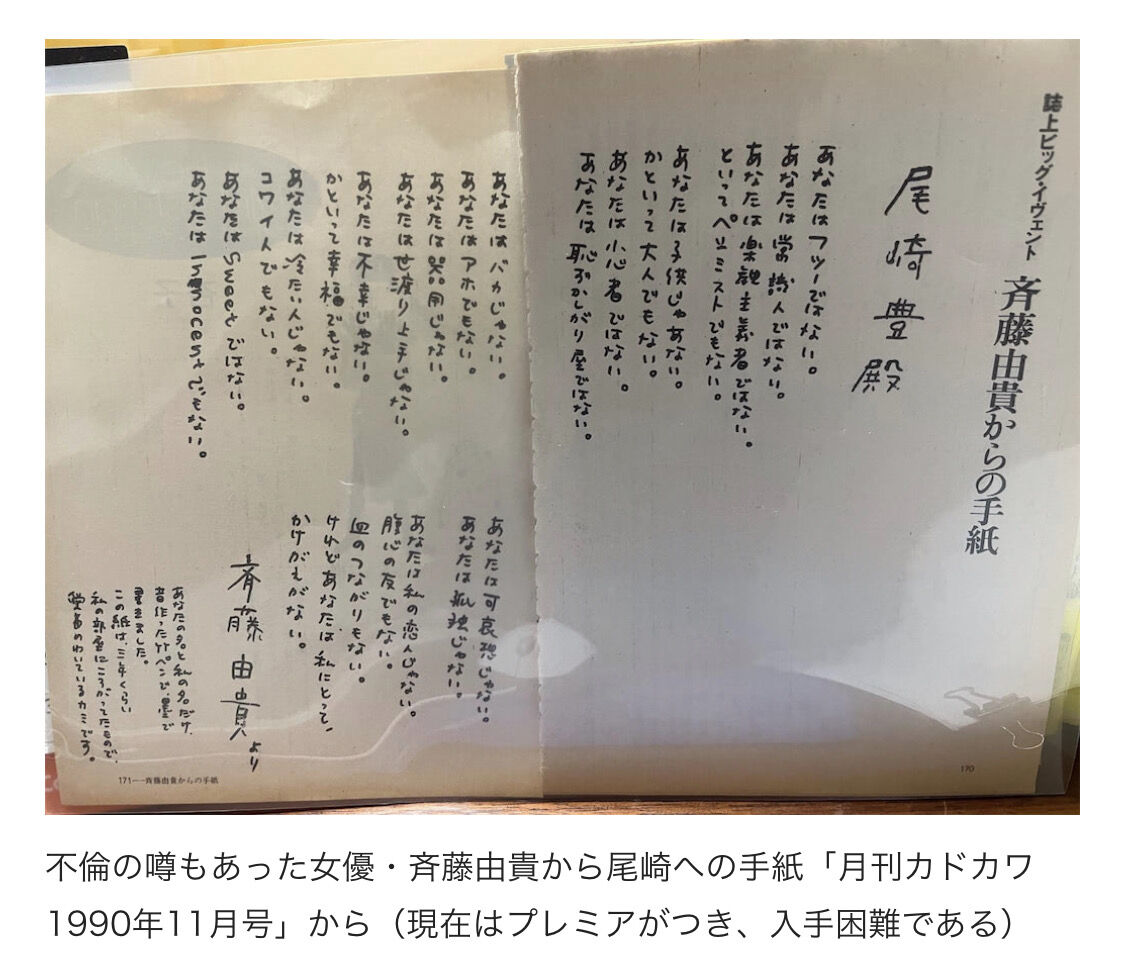 誌上ビッグ・イヴェント 斉藤由貴からの手紙
尾崎豊殿
あなたはフツーではない。
あなたは常識人ではない。
あなたは楽観主義者ではない。
といってペシミストでもない。
あなたは子供じゃあない。
かといって大人でもない。
あなたは小心者ではない。
あなたは恥ずかしがり屋ではない。
170
あなたはバカじゃない。
あなたはアホでもない。
あなたは器用じゃない。
あなたは世渡り上手じゃない。
あなたは不幸じゃない。
かといって幸福でもない。
あなたは冷たい人じゃない。
コワイ人でもない。
あなたはSweetではない。
あなたはInnocentでもない。
あなたは可哀想じゃない。
あなたは孤独じゃない。
あなたは私の恋人じゃない。
腹心の友でもない。
血のつながりもない。
けれどあなたは、私にとって、
かけがえがない。
斉藤由貴より
あなたの名と私の名だけ、
昔作った竹ペンで、墨で
書きました。
この紙は、三年くらい
私の部屋にころがってたもので、
愛着のわいているカミです。
171──斉藤由貴からの手紙
不倫の噂もあった女優・斉藤由貴から尾崎への手紙「月刊カドカワ
1990年11月号」から（現在はプレミアがつき、入手困難である）